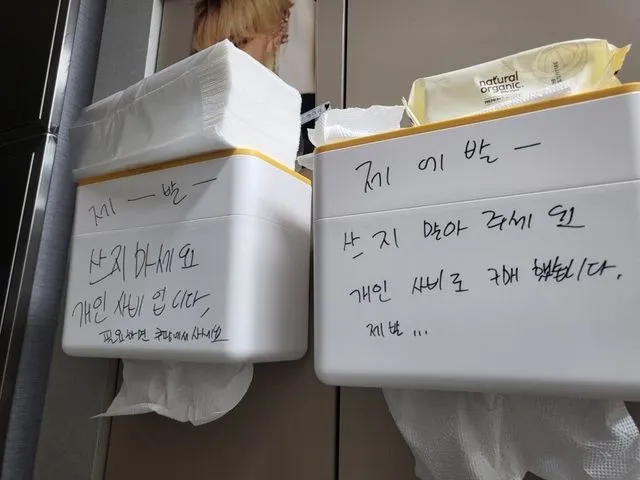 제 — 발 —
사지 마세요
개인 사비 입니다.
필요하면 쿠팡에서 사세요
natural
organic.
제 에 발 —
사지 말아 주세요
개인 사비로 구매 했습니다.
제발...